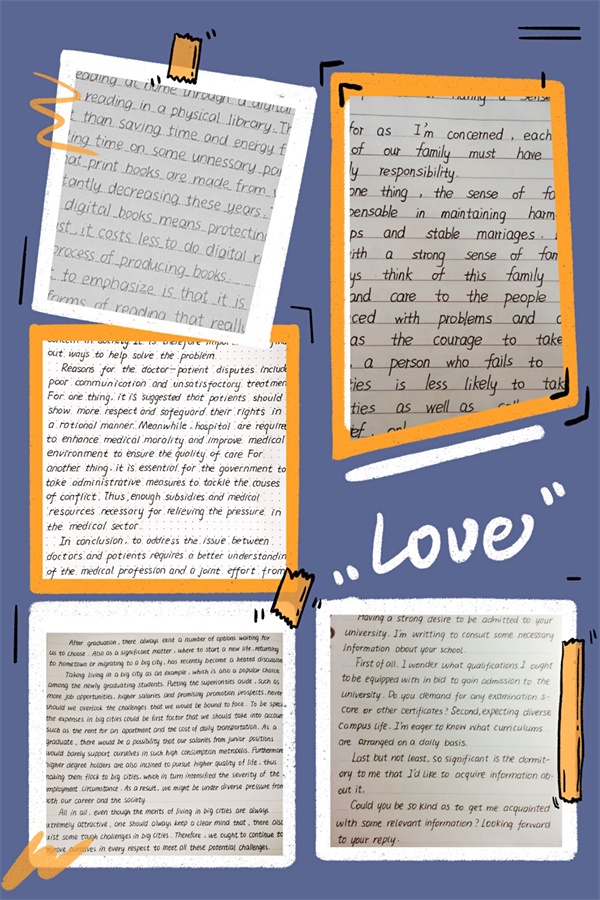 eading at home through a digital
reading in a physical library. Th
than saving time and energy f
ing time on some unnessory pa
at print books are made from
tantly decreasing these years.
digital books means protectin
st, it costs less to do digital r
process of producing books.
to emphasize is that it is
forms of reading that really
for as I'm concerned, each
of our family must have
ly responsibility.
one thing, the sense of fa
pensable in maintaining harm
ps and stable marriages.
ith a strong sense of fam
ys think of this family
and care to the people
ced with problems and c
as the courage to take
, a person who fails to
ties is less likely to tak
ties as well as
ef, onl
out ways to help solve the problem.
Reasons for the doctor-patient disputes include
poor communication and unsatisfactory treatmen
For one thing, it is suggested that patients should
show more respect and safeguard their rights in
a rational manner. Meanwhile, hospital are require
to enhance medical morality and improve medical
environment to ensure the quality of care For
another thing, it is essential for the government to
take administrative measures to tackle the causes
of conflict. Thus, enough subsidies and medical
resources necessary for relieving the pressure in
the medical sector.
In conclusion, to address the issue between
doctors and patients requires a better understandin
of the medical profession and a joint effort from
"Love"
After graduation, there always exist a number of options waiting for
us to choose. Also as a significant matter, where to start a new life, returning
to hometown or migrating to a big city, has recently become a heated discussion.
Taking living in a big city as an example, which is also a popular choice
among the newly graduating students. Putting the superiorities aside, such as
more job opportunities, higher salaries and promising promotion prospects, never
should we overlook the challenges that we would be bound to face. To be speci
the expenses in big cities could be first factor that we should take into accoun
such as the rent for an apartment and the cost of daily transportation. As a
graduate, there would be a possibility that our salaries from junior positions
would barely support ourselves in such high consumption metropolis. Furthermore
higher degree holders are also inclined to pursue higher quality of life, thus
making them flock to big cities, which in turn intensified the severity of the
employment circumstance. As a result, we might be under diverse pressure from
both our career and the society.
All in all, even though the merits of living in big cities are always
extremely attractive, one should always keep a clear mind that, there also
exist some tough challenges in big cities. Therefore, we ought to continue to
improve ourselves in every respect to meet all these potential challenges.
Having a strong desire to be admitted to your
university, I'm writting to consult some necessary
information about your school.
First of all, I wonder what qualifications I ought
to be equipped with in bid to gain admission to the
university. Do you demand for any examination s-
core or other certificates? Second, expecting diverse
campus life, I'm eager to know what curriculums
are arranged on a daily basis.
Last but not least, so significant is the dormit-
ory to me that I'd like to acquire information ab-
out it.
Could you be so kind as to get me acquainted
with some relevant information? Looking forward
to your reply.